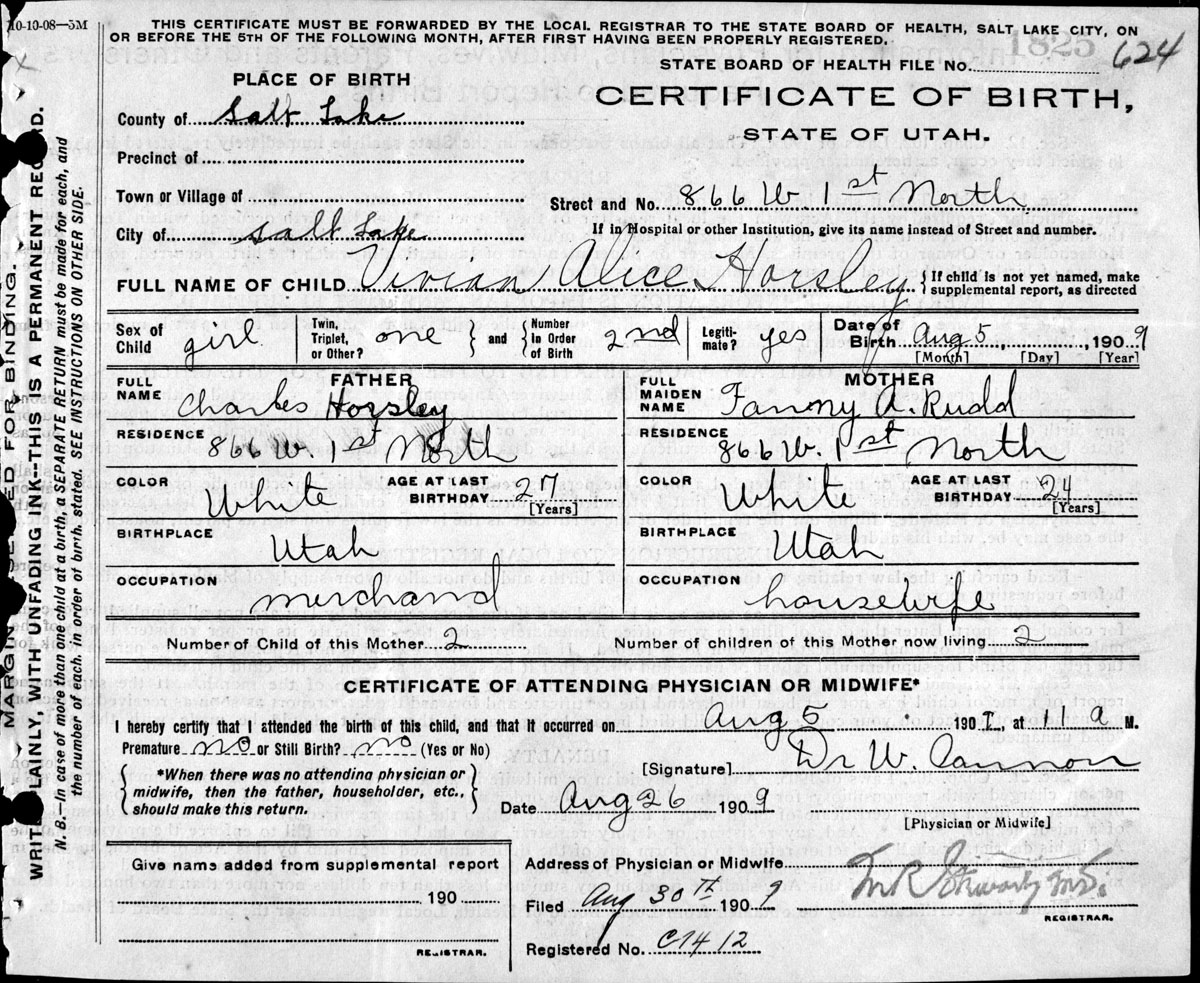 10-10-08—5M
THIS CERTIFICATE MUST BE FORWARDED BY THE LOCAL REGISTRAR TO THE STATE BOARD OF HEALTH, SALT LAKE CITY, ON
OR BEFORE THE 5TH OF THE FOLLOWING MONTH, AFTER FIRST HAVING BEEN PROPERLY REGISTERED.
1825
STATE BOARD OF HEALTH FILE No. 624
PLACE OF BIRTH
CERTIFICATE OF BIRTH,
STATE OF UTAH.
County of Salt Lake
Precinct of
Town or Village of
Street and No. 866 W. 1st North
City of Salt Lake
If in Hospital or other Institution, give its name instead of Street and number.
FULL NAME OF CHILD Vivian Alice Horsley { If child is not yet named, make supplemental report, as directed
Sex of Child girl Twin, Triplet, or Other? one } and { Number In Order of Birth 2nd Legiti-mate? yes Date of Birth Aug 5, 1909
[Month] [Day] [Year]
FATHER
FULL NAME Charles Horsley
RESIDENCE 866 W. 1st North
COLOR White AGE AT LAST BIRTHDAY 27
[Years]
BIRTHPLACE Utah
OCCUPATION merchand
MOTHER
FULL MAIDEN NAME Fanny A. Rudd
RESIDENCE 866 W. 1st North
COLOR White AGE AT LAST BIRTHDAY 24
[Years]
BIRTHPLACE Utah
OCCUPATION housewife
Number of Child of this Mother 2 Number of children of this Mother now living 2
CERTIFICATE OF ATTENDING PHYSICIAN OR MIDWIFE*
I hereby certify that I attended the birth of this child, and that it occurred on Aug 5 190 , at 1 a M.
Premature no or Still Birth? no (Yes or No)
{ *When there was no attending physician or midwife, then the father, householder, etc., should make this return. }
[Signature] Dr W. Cannon
Date Aug 26 1909
[Physician or Midwife]
Give name added from supplemental report
190
REGISTRAR.
Address of Physician or Midwife
Filed Aug 30TH 1909
M.D.
REGISTRAR.
Registered No. C1412
MARGIN RESERVED FOR BINDING.
WRITE PLAINLY, WITH UNFADING INK—THIS IS A PERMANENT RECORD.
N. B.—In case of more than one child at a birth, a SEPARATE RETURN must be made for each, and
the number of each, in order of birth, stated. SEE INSTRUCTIONS ON OTHER SIDE.